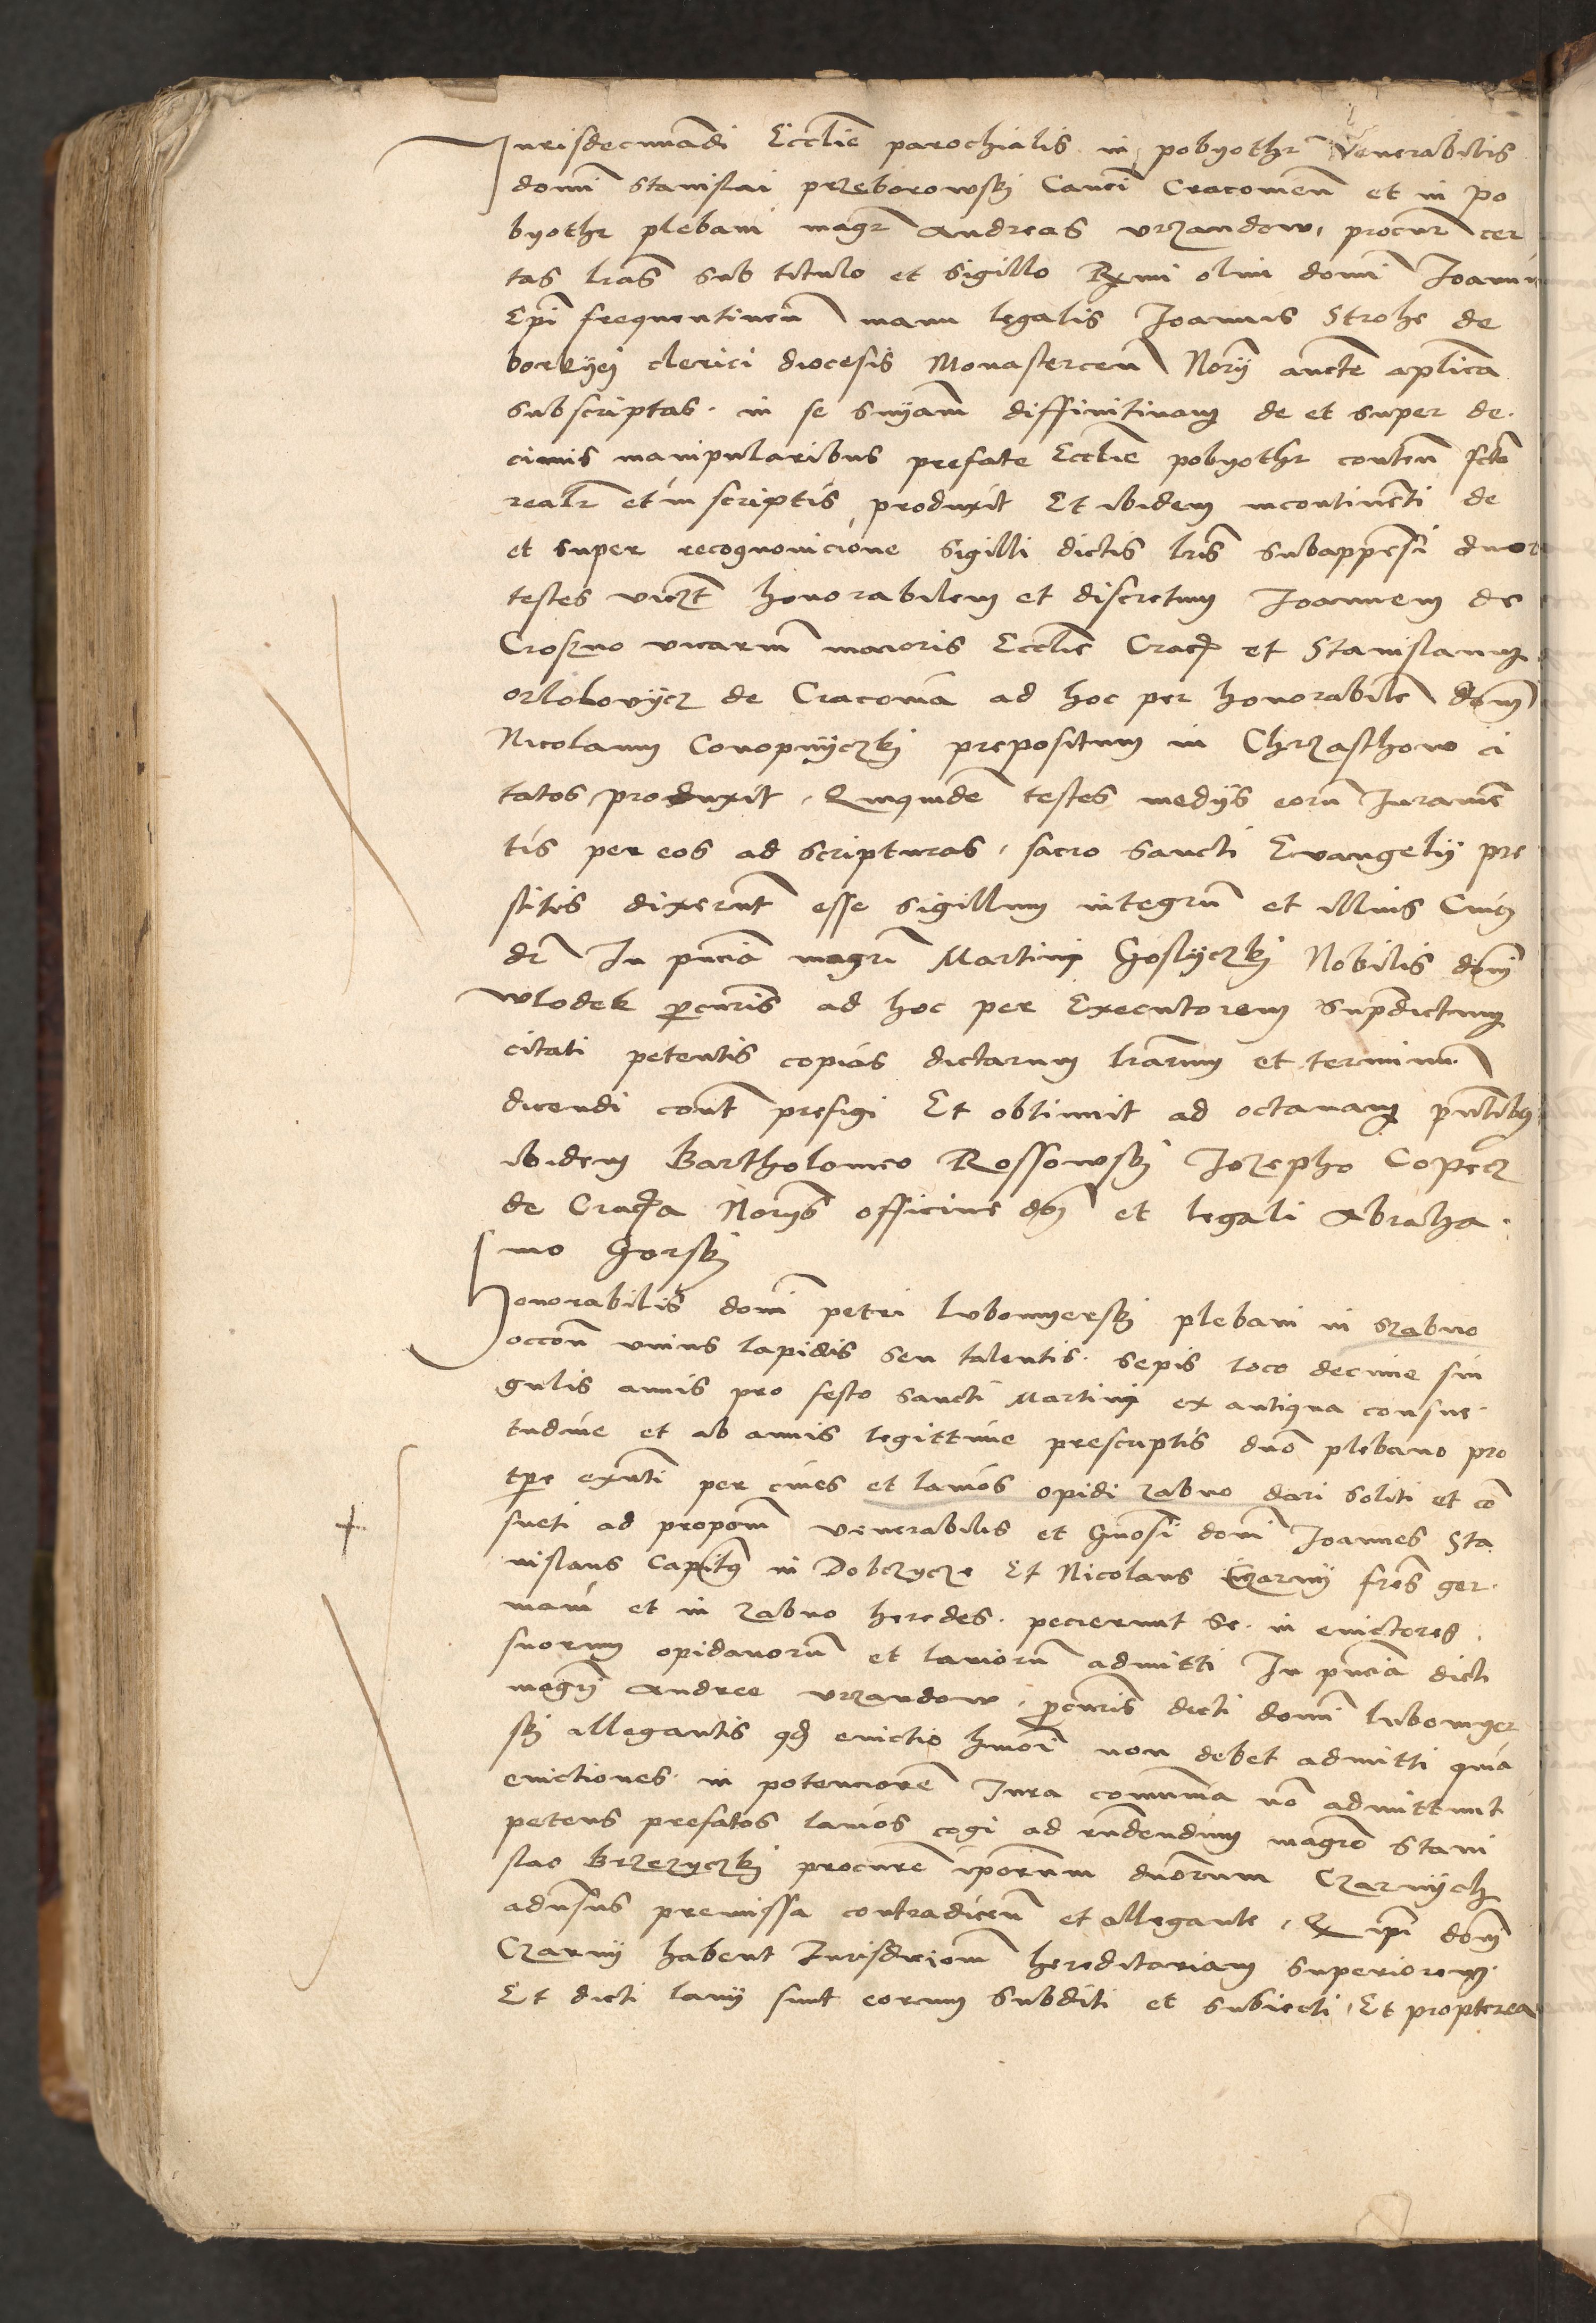 Jurisdecimandi Ecclie parochialis in pobyothr venerabilis
domi Stanislai przeborowskj Canci Cracomen et in po
byothr plebani magr Andreas vrzandow, procur cer
tas lras sub titulo et sigillo Rmi olim domi Joannis
Epi frequentinen manu legalis Joannis Strohe de
borkyej clerici diocesis Monasteren Norij aucte aplica
subscriptas. in se snyam diffinitinam de et super de.
cimis manipularibus prefate Ecclie pobyothr conten fcta
realr et in scriptis, produxit Et ibidem incontinenti de
et super recognonicione sigilli dictis lris subappensi duos
testes viczt honorabilem et discretum Joannem de
Croszno vicarium maioris Ecclie Crac et Stanislaum
orlolovycz de Cracomia ad hoc per honorabilem dnm
Nicolaum Conopnyczkj prepositum in Chrzasthow ci
tatos produxit. Quiquide testes medijs eorum Jurame
tis per eos ad scripturas, sacro sancti Ewangelij pre
stitis dixerunt esse sigillum integrum et illius Cuius
dr In pncia magri Martini Goslyczkj Nobilis dni
Wlodek pcuris ad hoc per Executorem supradictum
citati petentis copias dictarum lrarum et terminum
dicendi cont prefigi Et obtinuit ad octavam pntibus
ibidem Bartholomeo Rossowskj Jozepho Copecz
de Craca Norijs officiue dnj et legali Abraha.
mo Gorskj
Honorabilis domi petri lubomyerskj plebani in Szabno
occone unius lapidis seu talentis. sepis loco decime sin
gulis annis pro festo sancti Martini ex antiqua consue.
tudine et ab annis legittime prescriptis duo plebano pro
tpre exnti per cives et lanios opidi zabno dari soliti et co
sueti ad propom venerabilis et Gnosi domi Joannes Sta
nislaus Capitus in Dobczycze Et Nicolaus Czarnj fres ger.
mani et in zabno heredes. pecierunt se. in evictores.
suorum opidanorum et laniorum admitti In pncia dicti
magri Andree vrzandow, pcuris dicti domi lubomyer
skj allegantis qd evictio hmoi non debet admitti quia
evictiones in potenciorem Jura comunia no admittunt
petens prefatos lanios cogi ad rndendum magro Stani
slao Brzezyczkj procure iporum duorum Czarnych
adusus premissa contradicen et allegante, Q ipi domi
Czarnij habent Jurisdicionem hereditariam superiorem.
Et dicti lanij sunt eorum subditi et subiecti, Et propterea